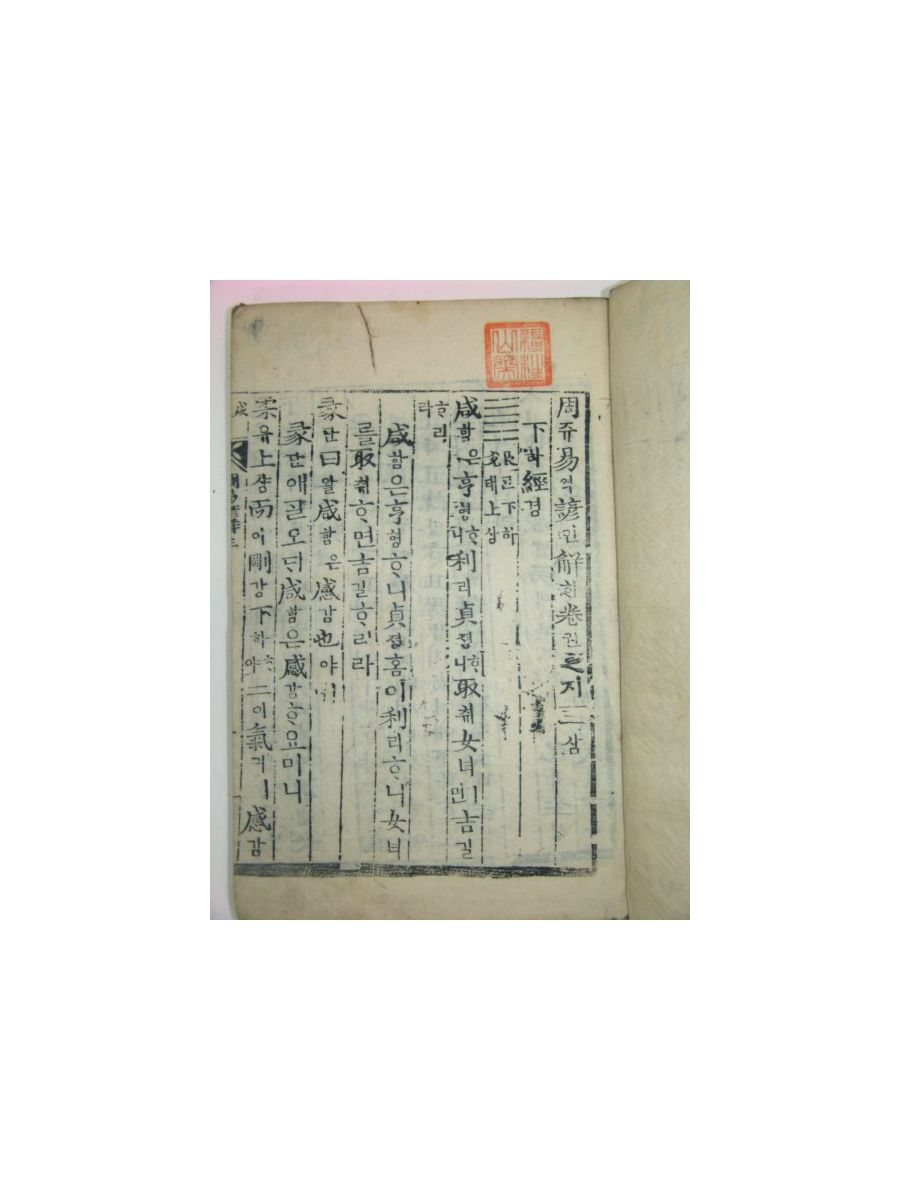 周쥬易역諺언解ᄒᆡ卷권之지三삼
下하經경
艮간下하
兌태上샹
咸함은亨형ᄒᆞ니利리貞졍ᄒᆞ니取츄女녀ㅣ면吉길
ᄒᆞ리라
咸함은亨형ᄒᆞ니貞졍홈이利리ᄒᆞ니女녀
를取츄ᄒᆞ면吉길ᄒᆞ리라
彖단曰왈咸함은感감也야ㅣ니
彖단애ᄀᆞᆯ오ᄃᆡ咸함은感감ᄒᆞ요미니
柔유上샹而이剛강下하ᄒᆞ야二이氣긔ㅣ感감